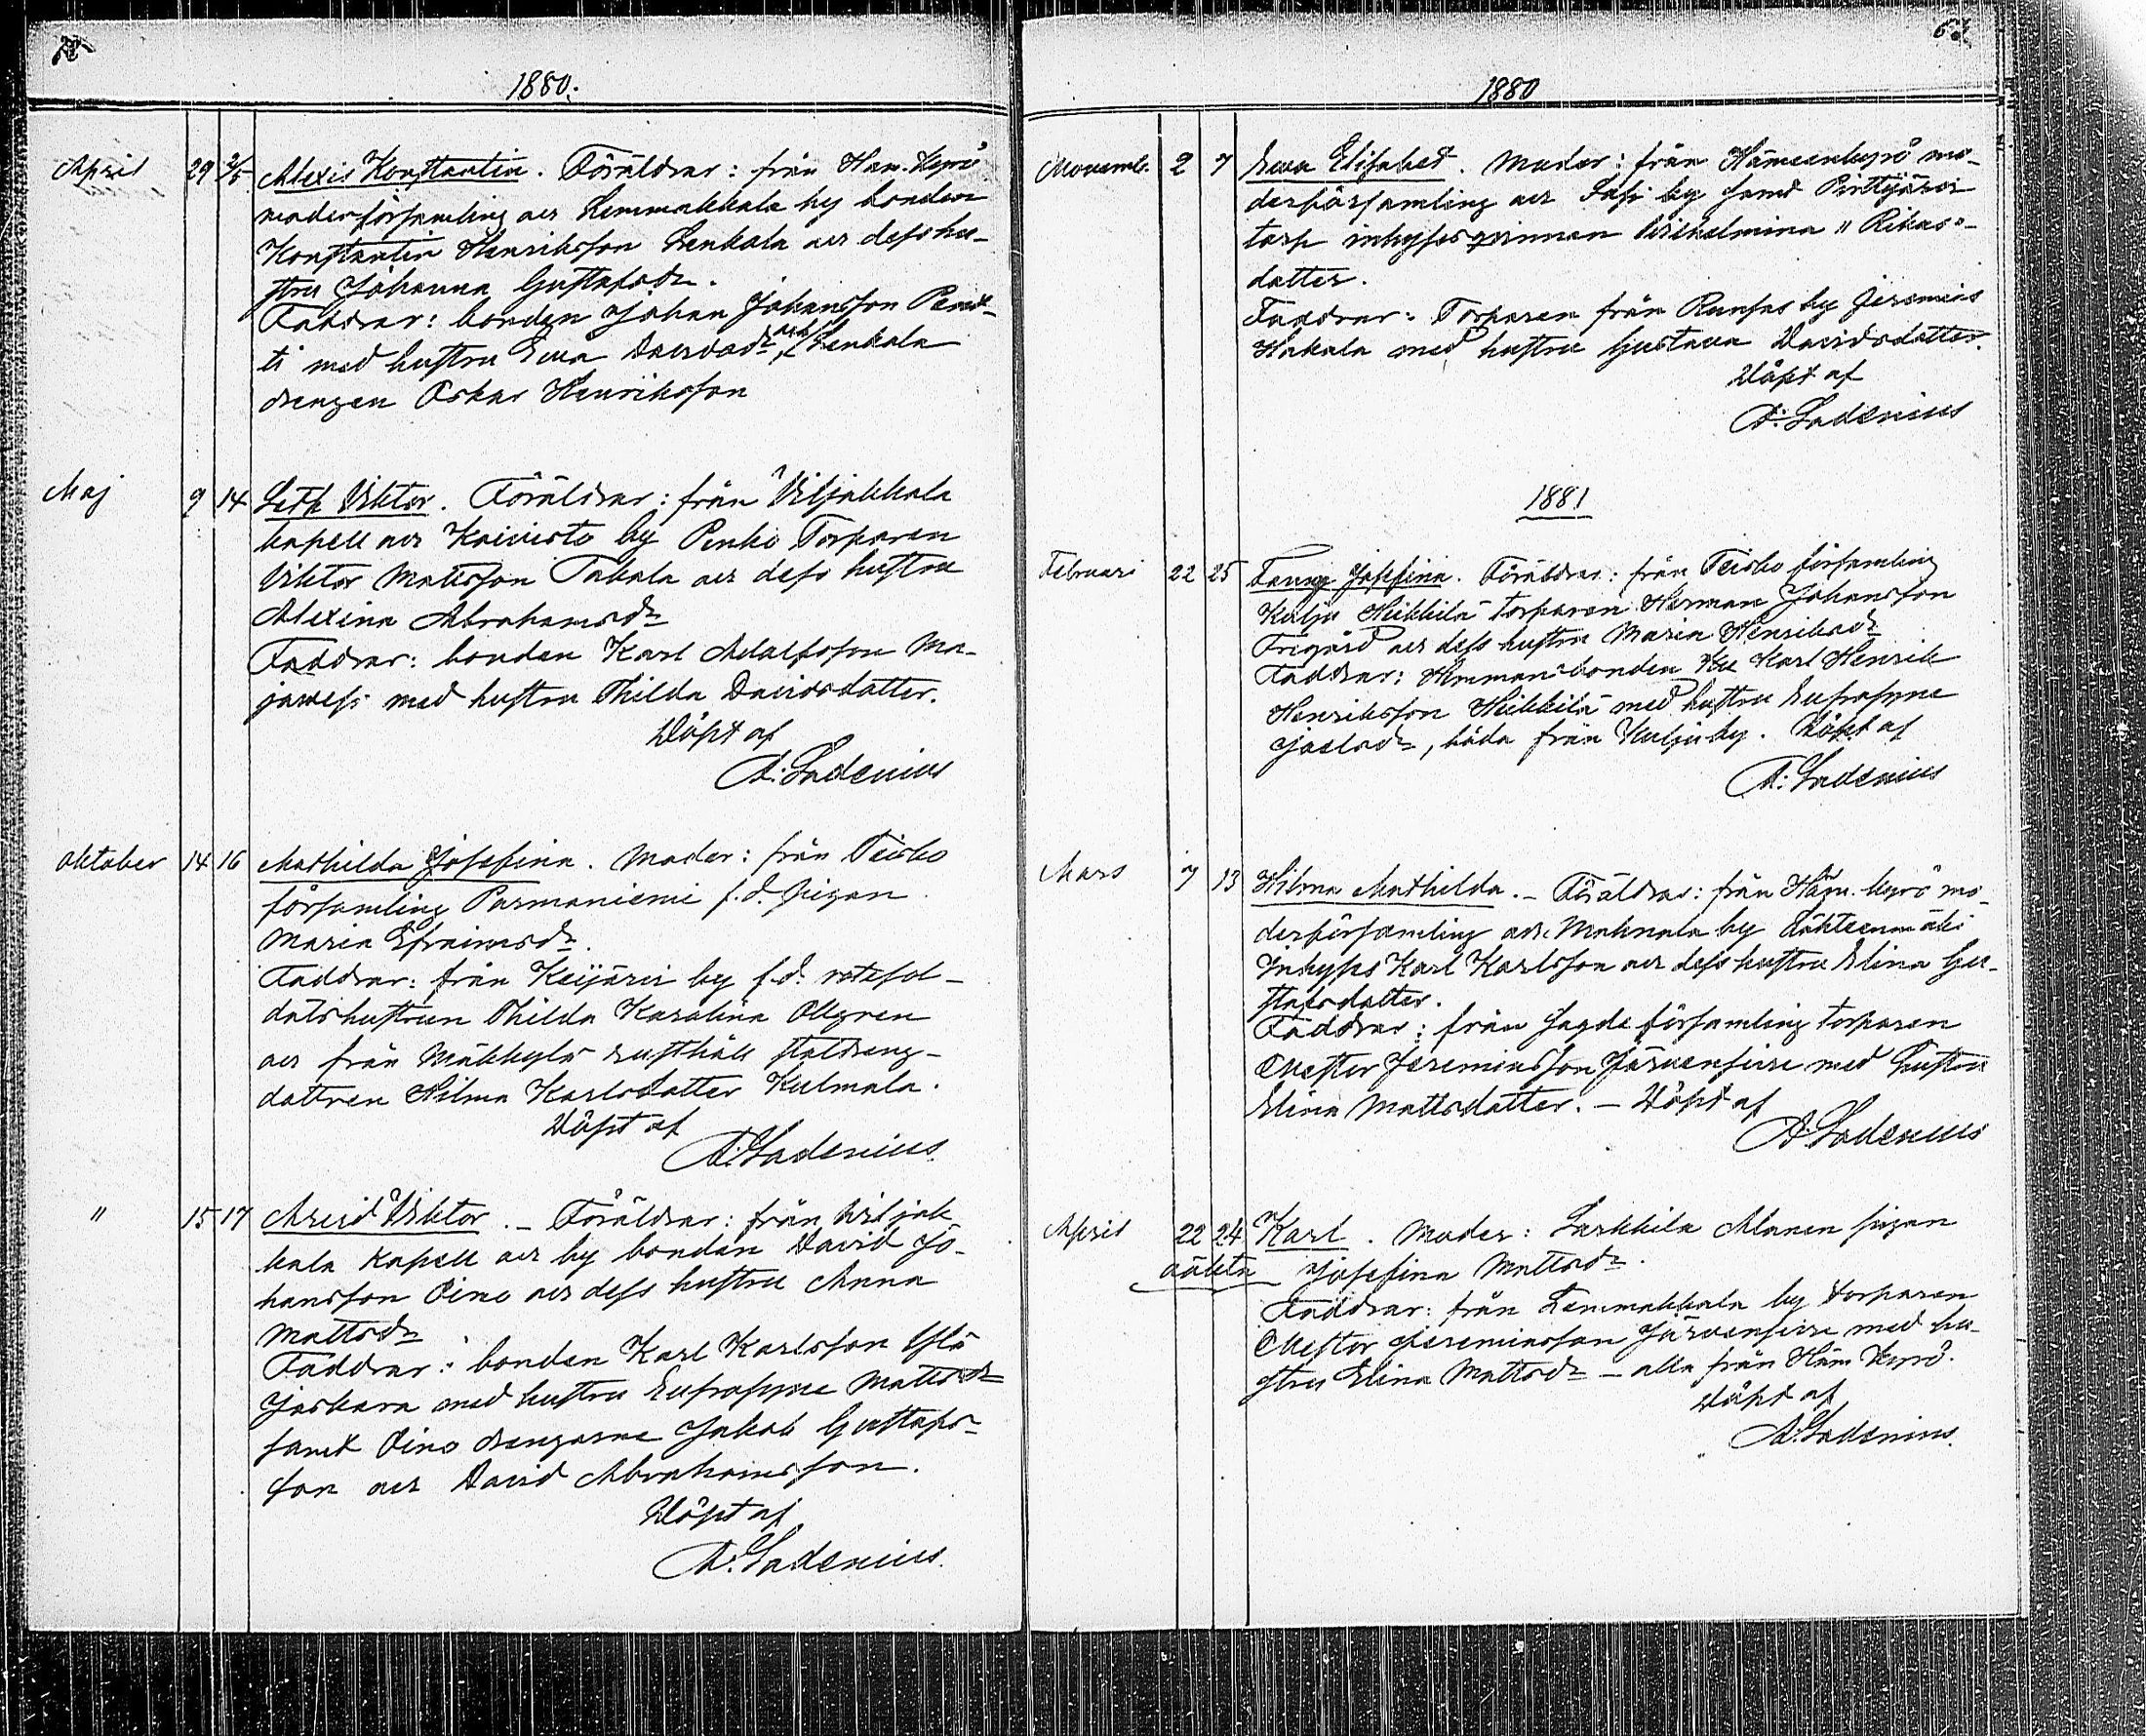 1880.
April 29 2/5 Alexis Konstantin. Föräldrar: från Ham. Kyrö
moderförsamling och Lemmakkala by bonden
Konstantin Henriksson Lenkala och dess hu-
stru Johanna Gustafsdr.
Faddrar: bonden Johan Johansson Pent-
ti med hustru Eva Davidsdr och Lenkala
drengen Oskar Henriksson
Maj 9 14 Seth Viktor. Föräldrar: från Viljakkala
kapell och Koivisto by Penko Torparen
Viktor Mattsson Takala och dess hustru
Alexina Abrahamsdr
Faddrar: bonden Karl Adolfsson Ma-
jawesi med hustru Thilda Davidsdatter.
Döpt af
A. Ladenius
Oktober 14 16 Mathilda Josefina. Moder: från Teisko
församling Parmaniemi f.d. pigan
Maria Efraimsdr.
Faddrar: från Keijärvi by f.d. rotesol-
datshustrun Thilda Karolina Ollgren
och från Mäkkylä rusthåll staldreng-
dattren Hilma Karlsdatter Kulmala.
Döpt af
A. Ladenius
" 15 17 Arvid Viktor. – Föräldrar: från Viljak
kala Kapell och by bonden David Jo-
hansson Oino och dess hustru Anna
Mattsdr
Faddrar: bonden Karl Karlsson Ylä
Jaskara med hustru Eufrosyne Mattsdr
samt Oino drengarne Jakob Gustafs-
son och David Abrahamsson.
Döpt af
A. Ladenius.
63.
1880
Novemb. 2 7 Eva Elisabed. Moder: från Hämeenkyrö mo-
derförsamling och Sasi by samt Pirttijärvi
torp inhysesqvinnan Vilhelmina "Rikas"-
datter.
Faddrar: Torparen från Runsas by Jeremias
Hakala med hustru Gustava Davidsdatter.
Döpt af
A. Ladenius
1881
Februari 22 25 Fanny Josefina. Föräldrar: från Teisko församling
Kulju Heikkilä torparen Herman Johansson
Frigård och dess hustru Maria Henriksdr
Faddrar: Hemmansbonden Karl Henrik
Henriksson Heikkilä med hustru Eufrosyne
Joelsdr, båda från Kulju by. Döpt af
A. Ladenius
Mars 7 13 Hilma Mathilda. – Föräldrar: från Häm. kyrö mo-
derförsamling och Mahnala by Lähteenmäki
Inhyses Karl Karlsson och dess hustru Elina Gu-
stafsdatter.
Faddrar: från sagde församling torparen
Nestor Jeremiasson Järvensivu med hustru
Elina Mattsdatter. – Döpt af
A. Ladenius
April 22 24 Karl. Moder: Sarkkila Alanen pigan
oäkta Josefina Mattsdr.
Faddrar: från Lemmakkala by torparen
Nestor Jeremiasson Järvensivu med hu-
stru Elina Mattsdr – alla från Häm Kyrö.
Döpt af
A. Ladenius.